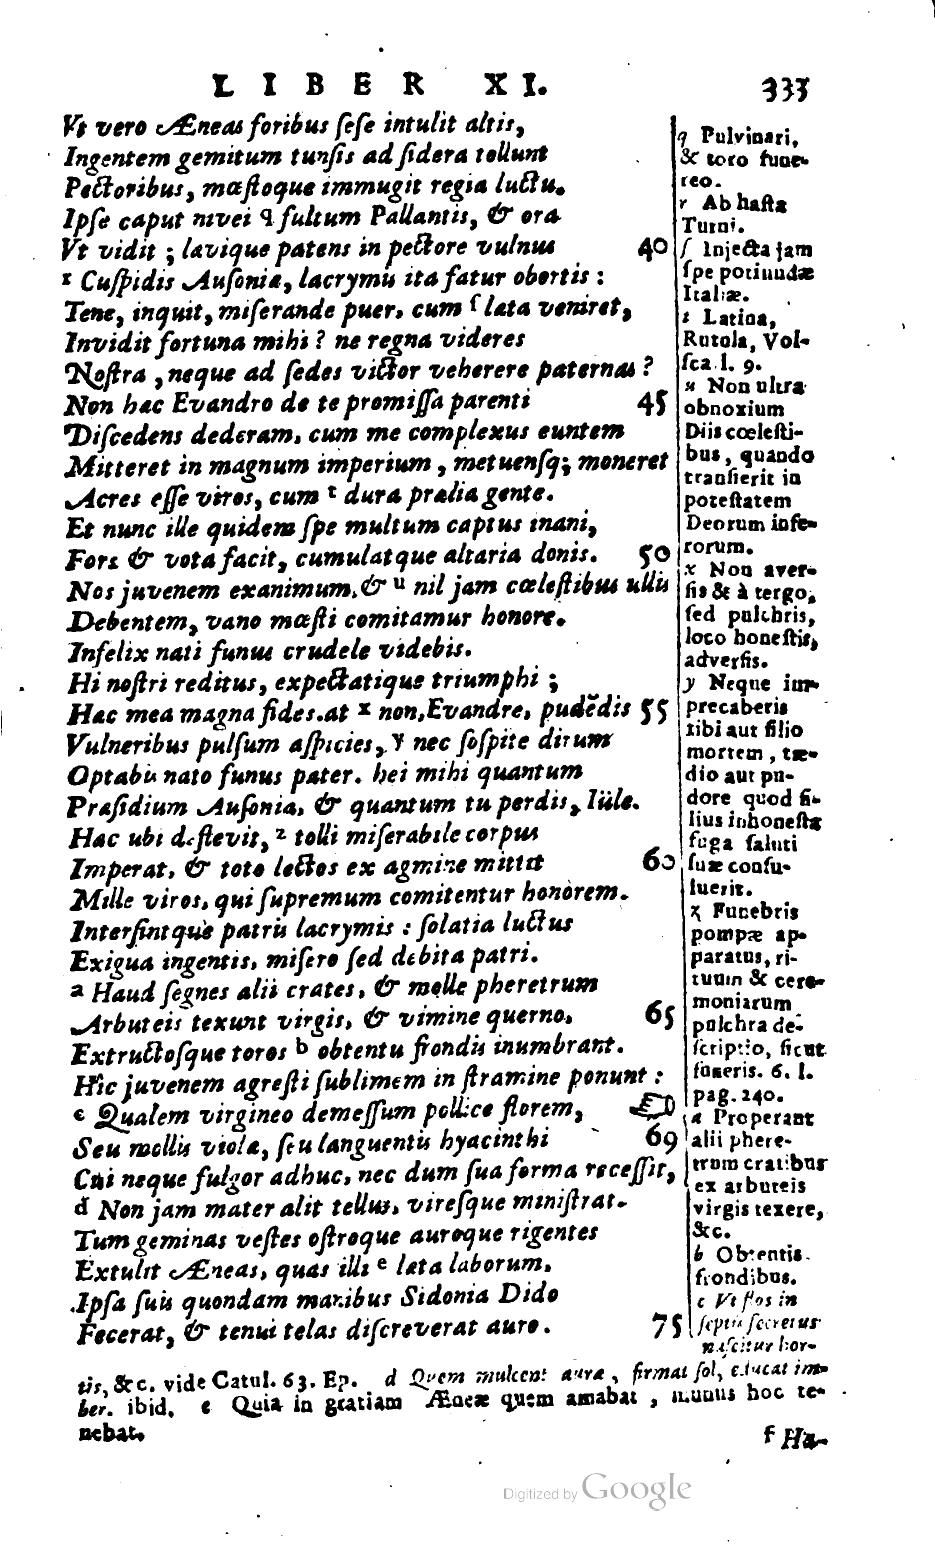 LIBER XI. 333
Vt vero Æneas foribus ſeſe intulit altis,
Ingentem gemitum tunſis ad ſidera tollunt
Pectoribus, mœſtoque immugit regia luctu.
Ipſe caput nivei q fultum Pallantis, & ora
Vt vidit ; lævique patens in pectore vulnus 40
r Cuſpidis Auſoniæ, lacrymis ita fatur obortis :
Tene, inquit, miſerande puer, cum ſ læta veniret,
Invidit fortuna mihi ? ne regna videres
Noſtra , neque ad ſedes victor veherere paternas ?
Non hæc Evandro de te promiſſa parenti 45
Diſcedens dederam, cum me complexus euntem
Mitteret in magnum imperium , metuenſq; moneret
Acres eſſe viros, cum t dura prælia gente.
Et nunc ille quidem ſpe multum captus inani,
Fors & vota facit, cumulatque altaria donis. 50
Nos juvenem exanimum, & u nil jam cœleſtibus ullis
Debentem, vano mœſti comitamur honore.
Infelix nati funus crudele videbis.
Hi noſtri reditus, expectatique triumphi ;
Hæc mea magna fides. at x non, Evandre, pudēdis 55
Vulneribus pulſum aſpicies, y nec ſoſpite dirum
Optabis nato funus pater. hei mihi quantum
Præſidium Auſonia, & quantum tu perdis, Iüle.
Hæc ubi deflevit, z tolli miſerabile corpus
Imperat, & toto lectos ex agmine mittit 60
Mille viros, qui ſupremum comitentur honorem.
Interſintque patris lacrymis : ſolatia luctus
Exigua ingentis, miſero ſed debita patri.
a Haud ſegnes alii crates, & molle pheretrum
Arbuteis texunt virgis, & vimine querno, 65
Extructoſque toros b obtentu frondis inumbrant.
Hic juvenem agreſti ſublimem in ſtramine ponunt :
c Qualem virgineo demeſſum pollice florem,
Seu mollis violæ, ſeu languentis hyacinthi 69
Cui neque fulgor adhuc, nec dum ſua forma receſſit,
d Non jam mater alit tellus, vireſque miniſtrat.
Tum geminas veſtes oſtroque auroque rigentes
Extulit Æneas, quas illi e læta laborum,
Ipſa ſuis quondam manibus Sidonia Dido
Fecerat, & tenui telas diſcreverat auro. 75
q Pulvinari,
& toro fune-
reo.
r Ab haſta
Turni.
ſ Injecta jam
ſpe potiundæ
Italiæ.
t Latina,
Rutola, Vol-
ſca l. 9.
u Non ultra
obnoxium
Diis cœleſti-
bus, quando
tranſierit in
poteſtatem
Deorum infe-
rorum.
x Non aver-
ſis & à tergo,
ſed pulchris,
loco honeſtis,
adverſis.
y Neque im-
precaberis
tibi aut filio
mortem, tæ-
dio aut pu-
dore quod fi-
lius inhoneſta
fuga ſaluti
ſuæ conſu-
luerit.
z Funebris
pompæ ap-
paratus, ri-
tuum & cere-
moniarum
pulchra de-
ſcriptio, ſicut
ſuneris. 6. l.
pag. 240.
a Properant
alii phere-
trum cratibus
ex arbuteis
virgis texere,
&c.
b Obtentis
frondibus.
c Vt flos in
ſeptis ſecretus
naſcitur hor-
tis, &c. vide Catul. 63. Ep. d Quem mulcent auræ, firmat ſol, educat im-
ber. ibid. e Quia in gratiam Æneæ quem amabat, munus hoc te-
nebat.
f Ha-
Digitized by Google